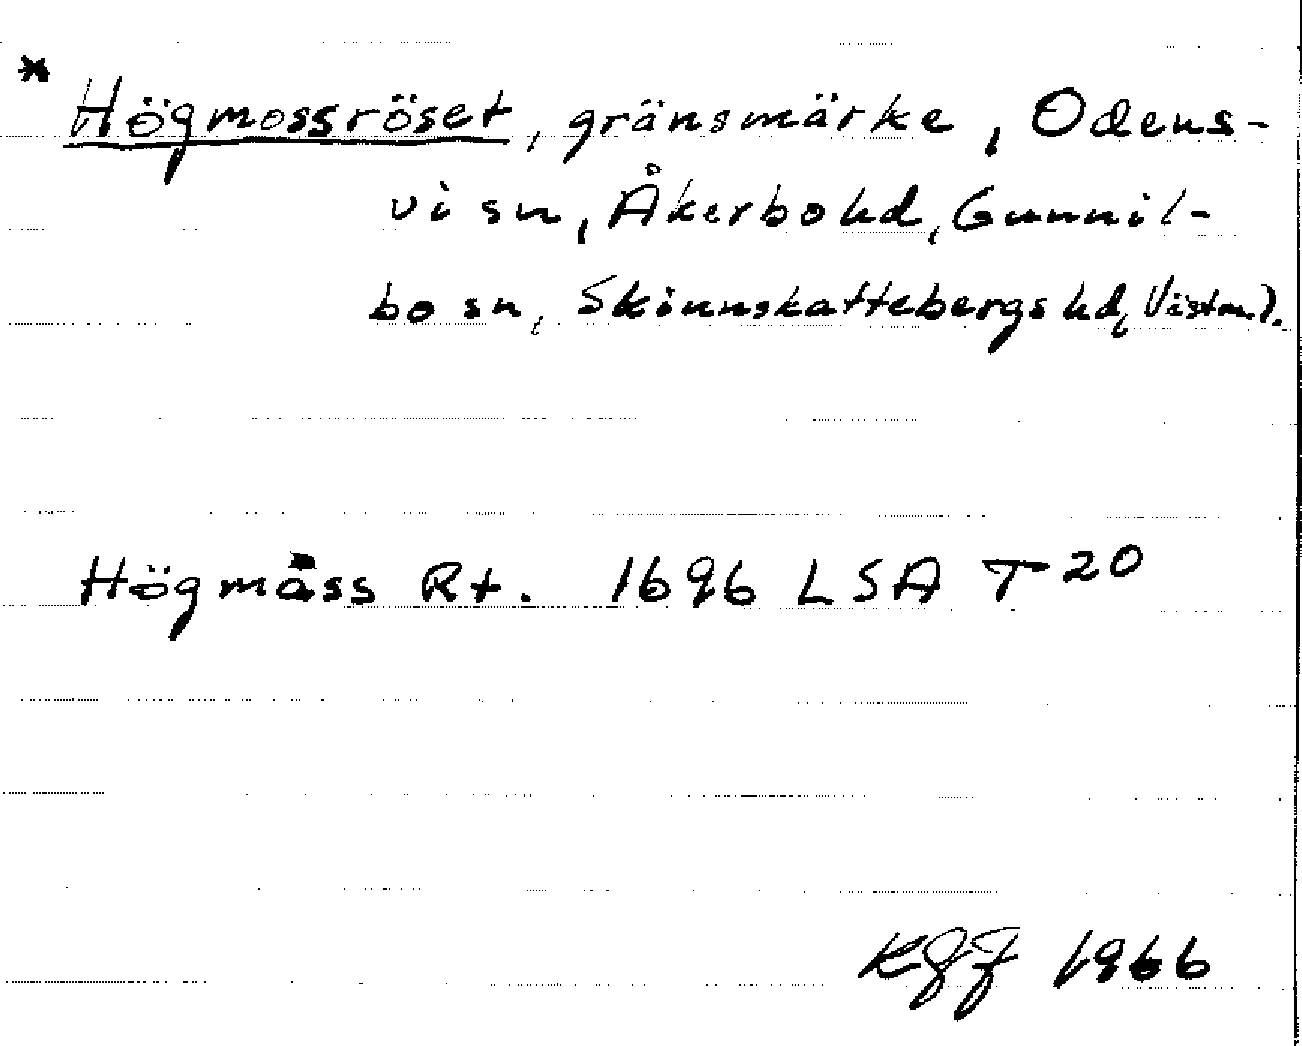 * Högmossröset, gränsmärke, Odens-
vi sn, Åkerbo hd, Gunnil-
bo sn, Skinnskattebergs hd, Västm.).
Högmåss Rt. 1696 LSA T 20
1966